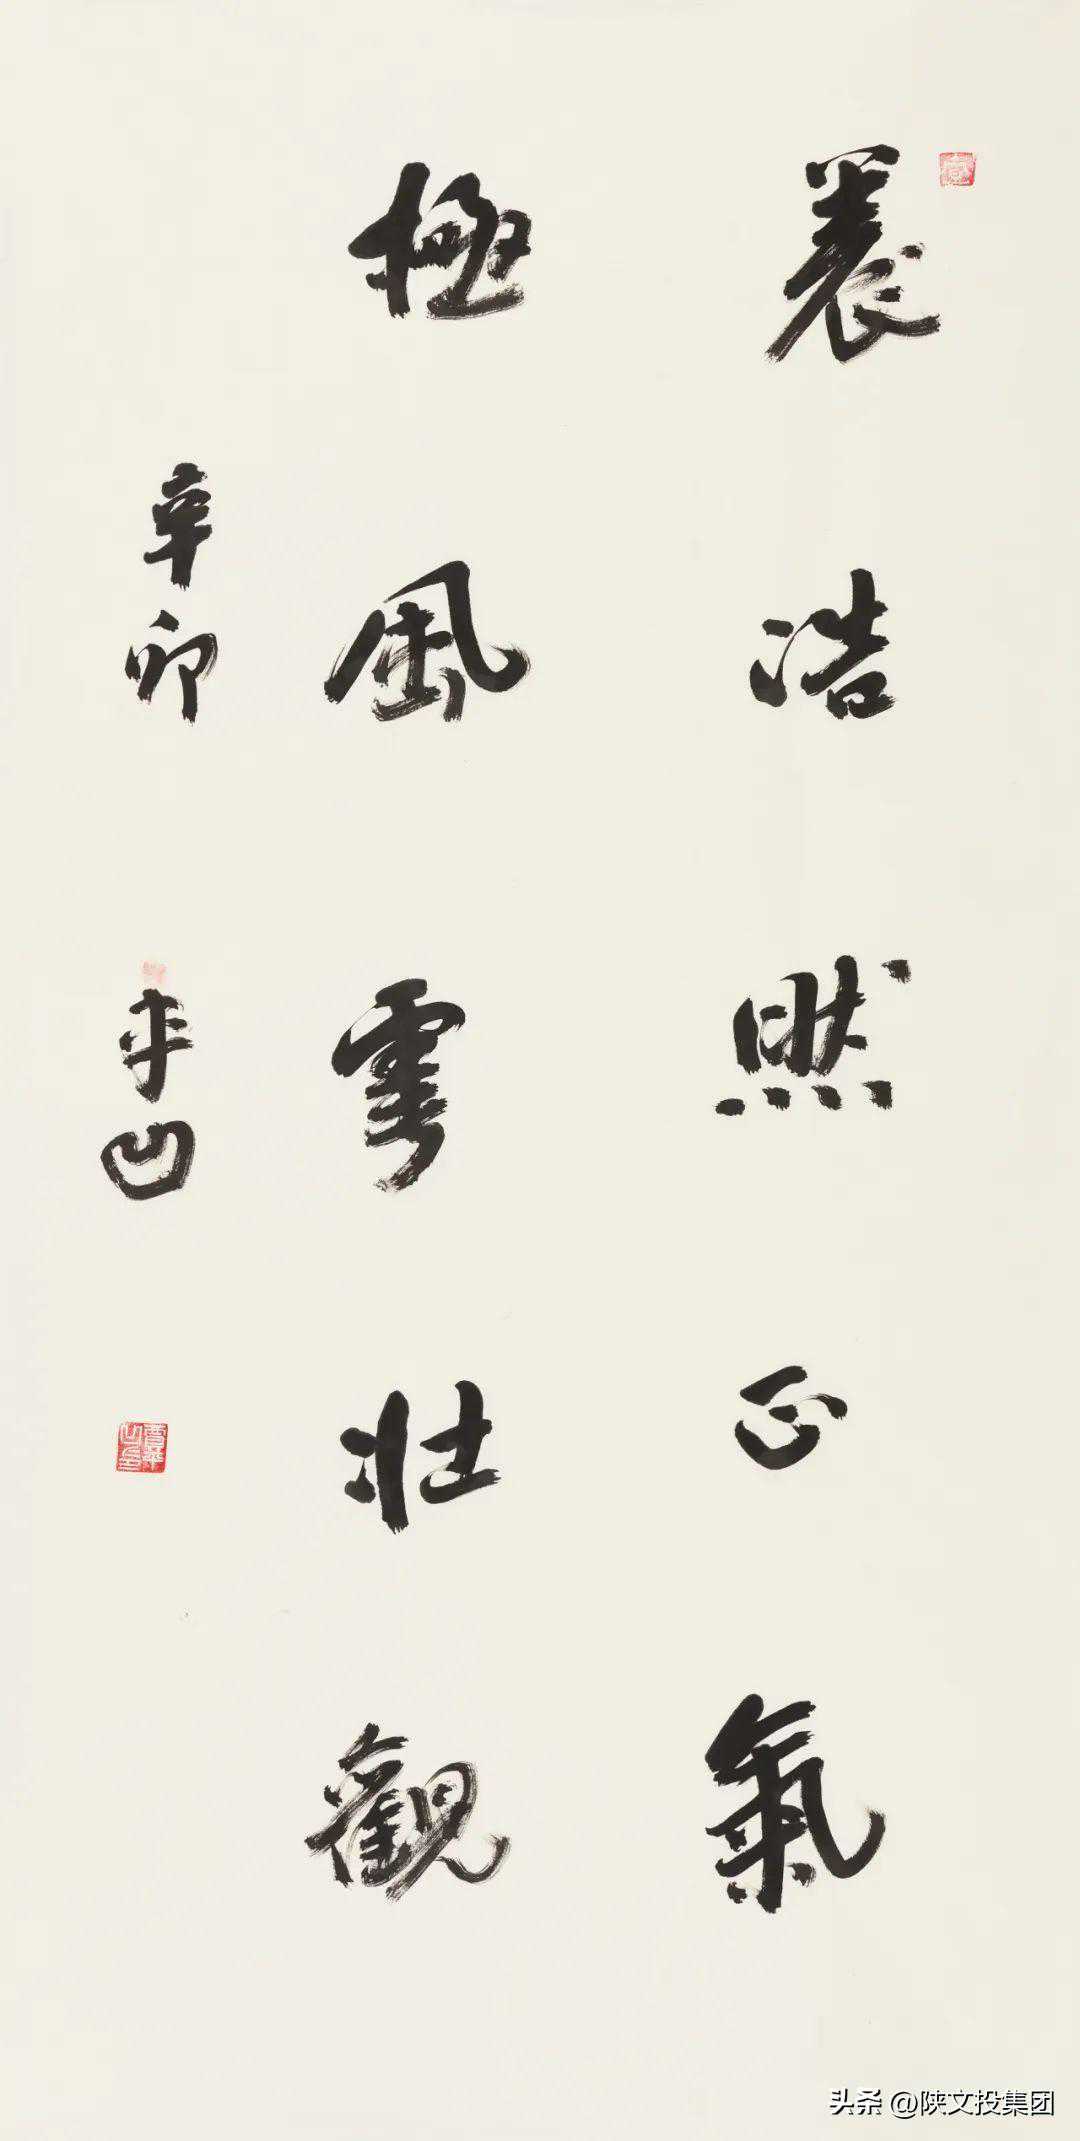 養浩然正氣
極風雲壯觀
辛卯
平凹
头条 @陕文投集团